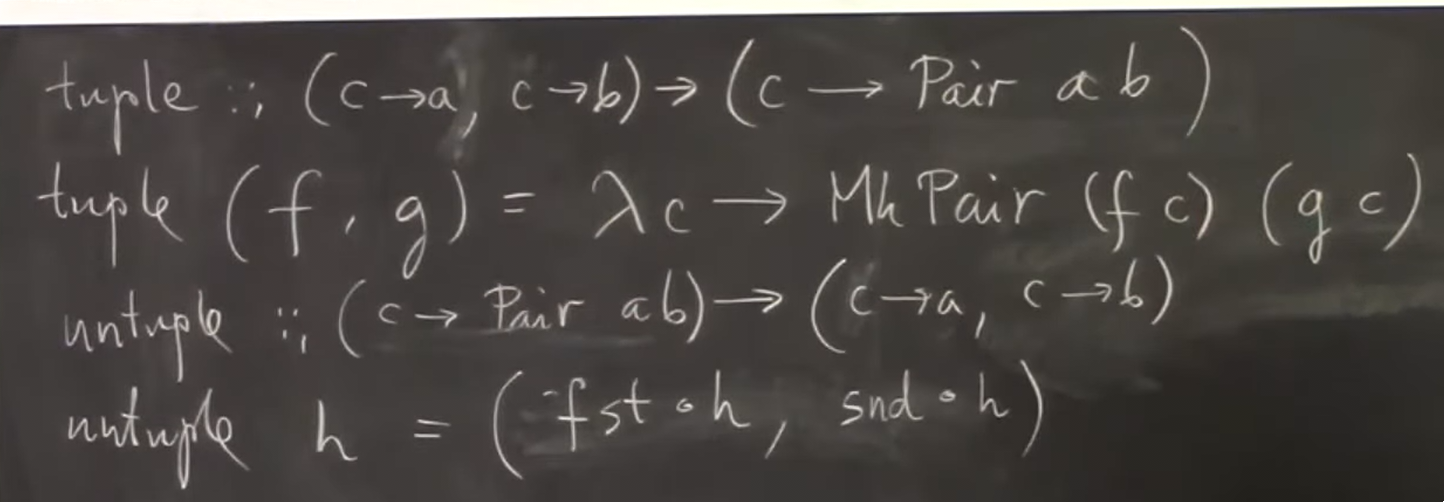 tuple :: (c→a, c→b)→(c → Pair a b)
tuple (f, g) = λc → MkPair (f c) (g c)
untuple :: (c→ Pair a b)→(c→a, c→b)
untuple h = (fst ∘ h, snd ∘ h)